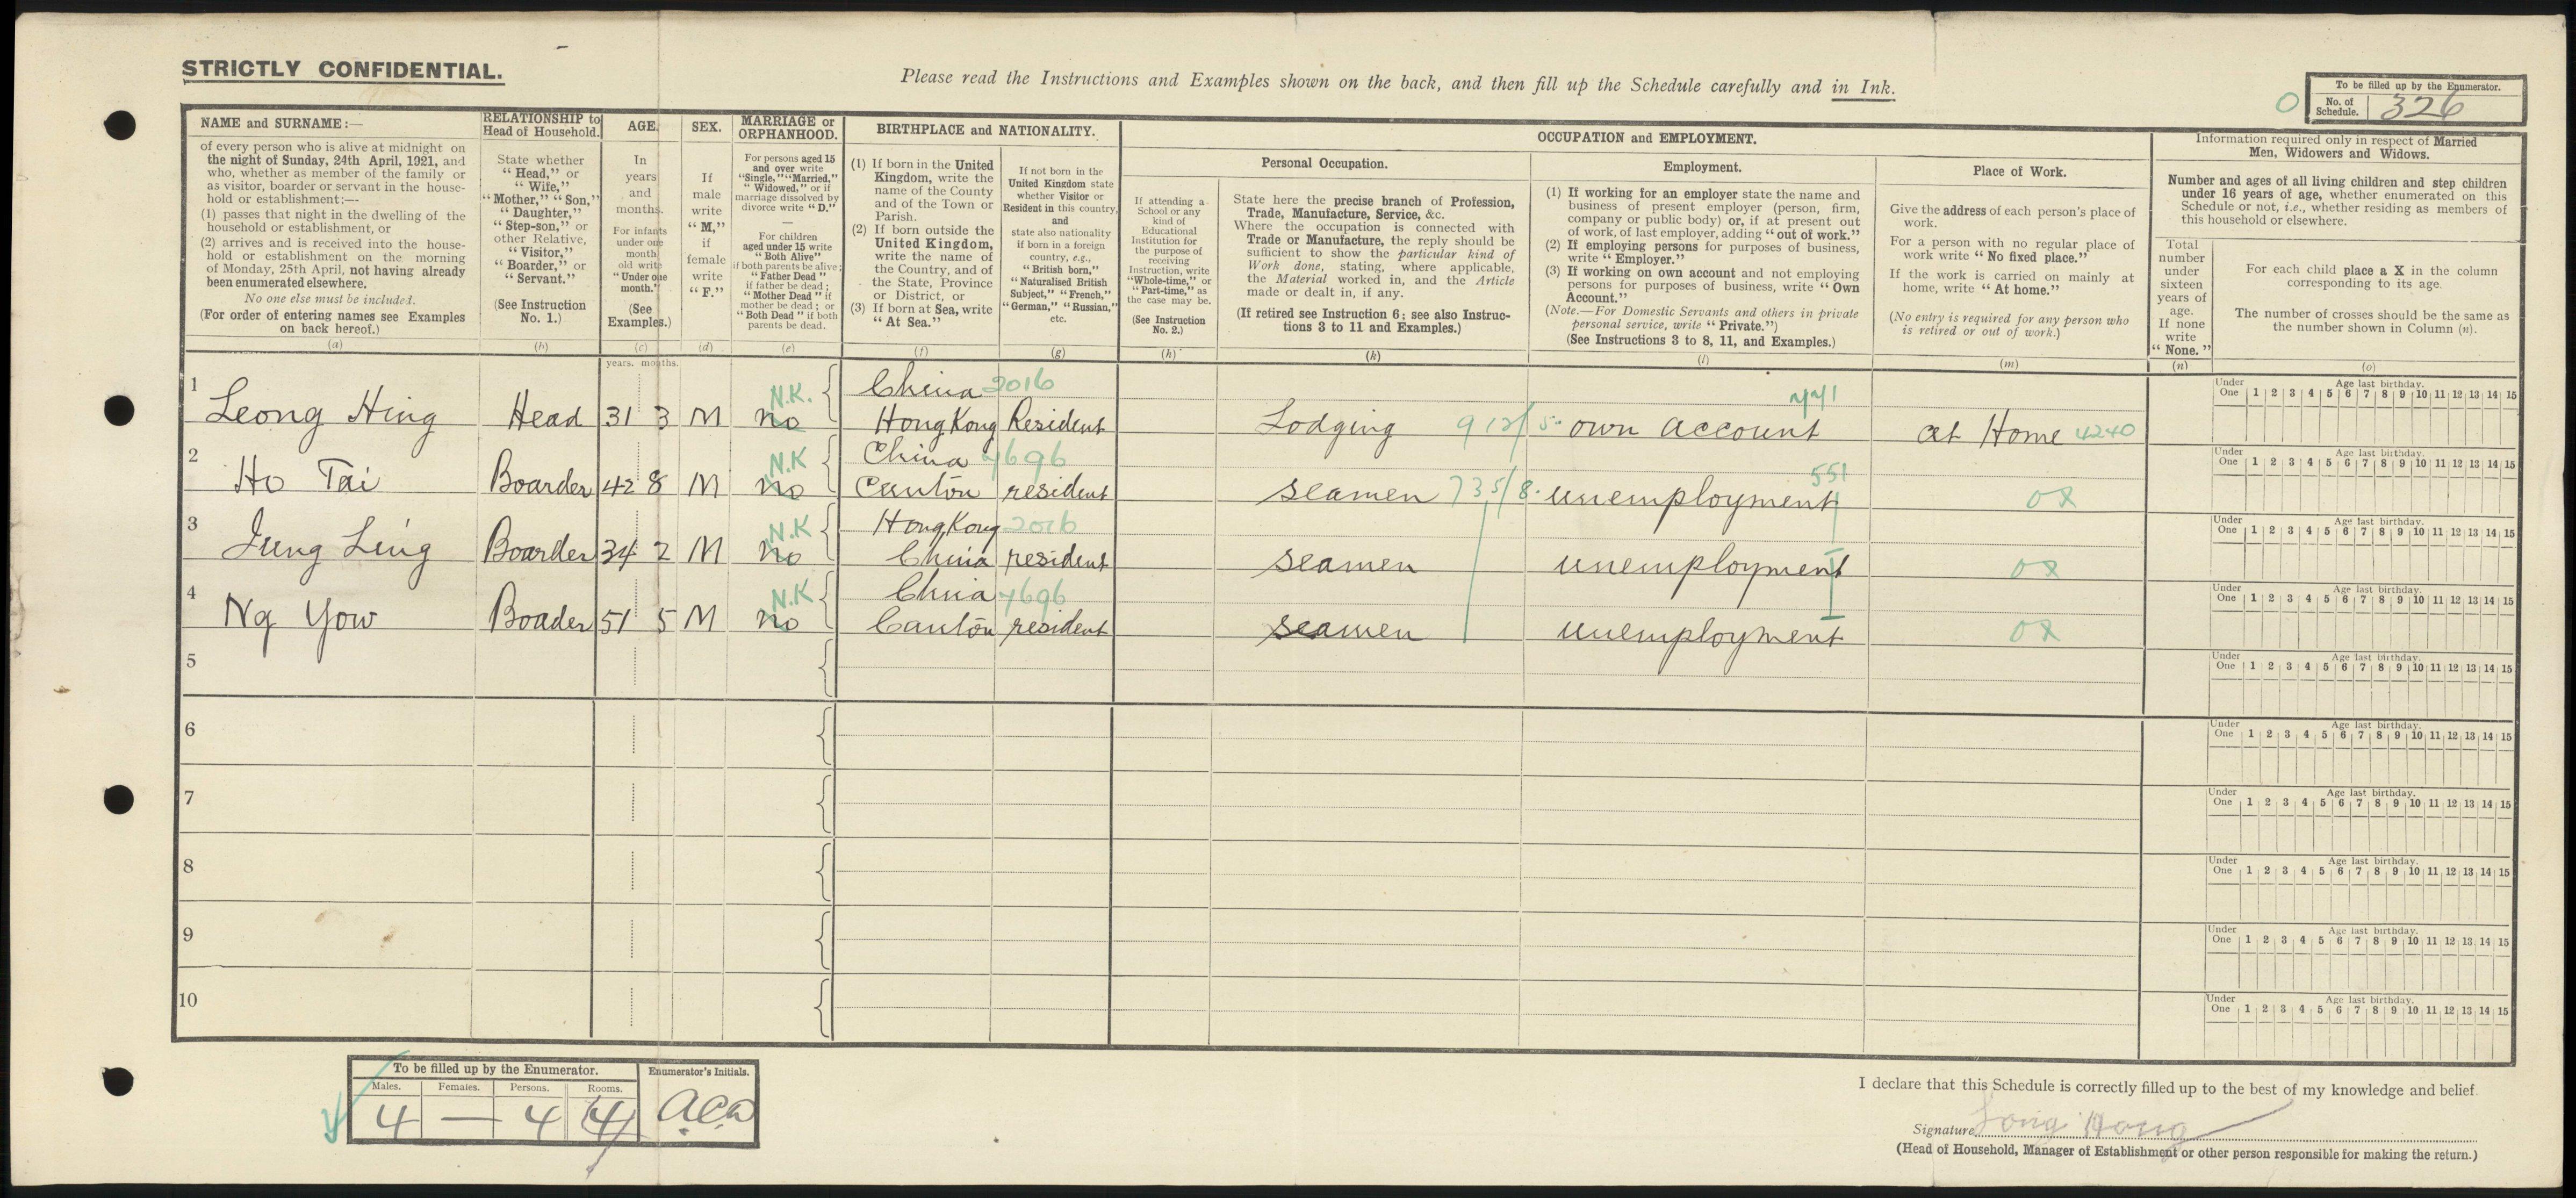 STRICTLY CONFIDENTIAL.
Please read the Instructions and Examples shown on the back, and then fill up the Schedule carefully and in Ink.
To be filled up by the Enumerator.
No. of Schedule. 326
NAME and SURNAME:—
of every person who is alive at midnight on
the night of Sunday, 24th April, 1921, and
who, whether as member of the family or
as visitor, boarder or servant in the house-
hold or establishment:—
(1) passes that night in the dwelling of the
household or establishment, or
(2) arrives and is received into the house-
hold or establishment on the morning
of Monday, 25th April, not having already
been enumerated elsewhere.
No one else must be included.
(For order of entering names see Examples
on back hereof.)
(a)
RELATIONSHIP to
Head of Household.
State whether
"Head," or
"Wife,"
"Mother," "Son,"
"Daughter,"
"Step-son," or
other Relative,
"Visitor,"
"Boarder," or
"Servant."
(See Instruction
No. 1.)
(b)
AGE.
In
years
and
months.
For infants
under one
month
old write
"Under one
month."
(See
Examples.)
(c)
SEX.
If
male
write
"M,"
if
female
write
"F."
(d)
MARRIAGE or
ORPHANHOOD.
For persons aged 15
and over write
"Single," "Married,"
"Widowed," or if
marriage dissolved by
divorce write "D."
—
For children
aged under 15 write
"Both Alive"
if both parents be alive;
"Father Dead"
if father be dead;
"Mother Dead" if
mother be dead; or
"Both Dead" if both
parents be dead.
(e)
BIRTHPLACE and NATIONALITY.
(1) If born in the United
Kingdom, write the
name of the County
and of the Town or
Parish.
(2) If born outside the
United Kingdom,
write the name of
the Country, and of
the State, Province
or District, or
(3) If born at Sea, write
"At Sea."
(f)
If not born in the
United Kingdom state
whether Visitor or
Resident in this country,
and
state also nationality
if born in a foreign
country, e.g.,
"British born,"
"Naturalised British
Subject," "French,"
"German," "Russian,"
etc.
(g)
OCCUPATION and EMPLOYMENT.
Personal Occupation.
If attending a
School or any
kind of
Educational
Institution for
the purpose of
receiving
Instruction, write
"Whole-time," or
"Part-time," as
the case may be.
(See Instruction
No. 2.)
(h)
State here the precise branch of Profession,
Trade, Manufacture, Service, &c.
Where the occupation is connected with
Trade or Manufacture, the reply should be
sufficient to show the particular kind of
Work done, stating, where applicable,
the Material worked in, and the Article
made or dealt in, if any.
(If retired see Instruction 6; see also Instruc-
tions 3 to 11 and Examples.)
(k)
Employment.
(1) If working for an employer state the name and
business of present employer (person, firm,
company or public body) or, if at present out
of work, of last employer, adding "out of work."
(2) If employing persons for purposes of business,
write "Employer."
(3) If working on own account and not employing
persons for purposes of business, write "Own
Account."
(Note.—For Domestic Servants and others in private
personal service, write "Private.")
(See Instructions 3 to 8, 11, and Examples.)
(l)
Place of Work.
Give the address of each person's place of
work.
For a person with no regular place of
work write "No fixed place."
If the work is carried on mainly at
home, write "At home."
(No entry is required for any person who
is retired or out of work.)
(m)
Information required only in respect of Married
Men, Widowers and Widows.
Number and ages of all living children and step children
under 16 years of age, whether enumerated on this
Schedule or not, i.e., whether residing as members of
this household or elsewhere.
Total
number
under
sixteen
years of
age.
If none
write
"None."
(n)
For each child place a X in the column
corresponding to its age.
The number of crosses should be the same as
the number shown in Column (n).
(o)
years. months.
1 Leong Hing Head 31 3 M N.K. no China 2016 Hong Kong Resident Lodging 912/5. own account 441 at Home 4240
Under One 1 2 3 4 5 6 7 8 9 10 11 12 13 14 15 Age last birthday.
2 Ho Tai Boarder 42 8 M N.K no China 4696 Canton resident seamen 735/8. unemployment 551 OX
Under One 1 2 3 4 5 6 7 8 9 10 11 12 13 14 15 Age last birthday.
3 Jung Ling Boarder 34 2 M N.K no Hong Kong 2016 China resident seamen unemployment OX
Under One 1 2 3 4 5 6 7 8 9 10 11 12 13 14 15 Age last birthday.
4 Ng Yow Boader 51 5 M N.K no China 4696 Canton resident seamen unemployment OX
Under One 1 2 3 4 5 6 7 8 9 10 11 12 13 14 15 Age last birthday.
5
Under One 1 2 3 4 5 6 7 8 9 10 11 12 13 14 15 Age last birthday.
6
Under One 1 2 3 4 5 6 7 8 9 10 11 12 13 14 15 Age last birthday.
7
Under One 1 2 3 4 5 6 7 8 9 10 11 12 13 14 15 Age last birthday.
8
Under One 1 2 3 4 5 6 7 8 9 10 11 12 13 14 15 Age last birthday.
9
Under One 1 2 3 4 5 6 7 8 9 10 11 12 13 14 15 Age last birthday.
10
Under One 1 2 3 4 5 6 7 8 9 10 11 12 13 14 15 Age last birthday.
To be filled up by the Enumerator.
Enumerator's Initials.
Males. Females. Persons. Rooms.
4 — 4 4 ACW
I declare that this Schedule is correctly filled up to the best of my knowledge and belief.
Signature
(Head of Household, Manager of Establishment or other person responsible for making the return.)